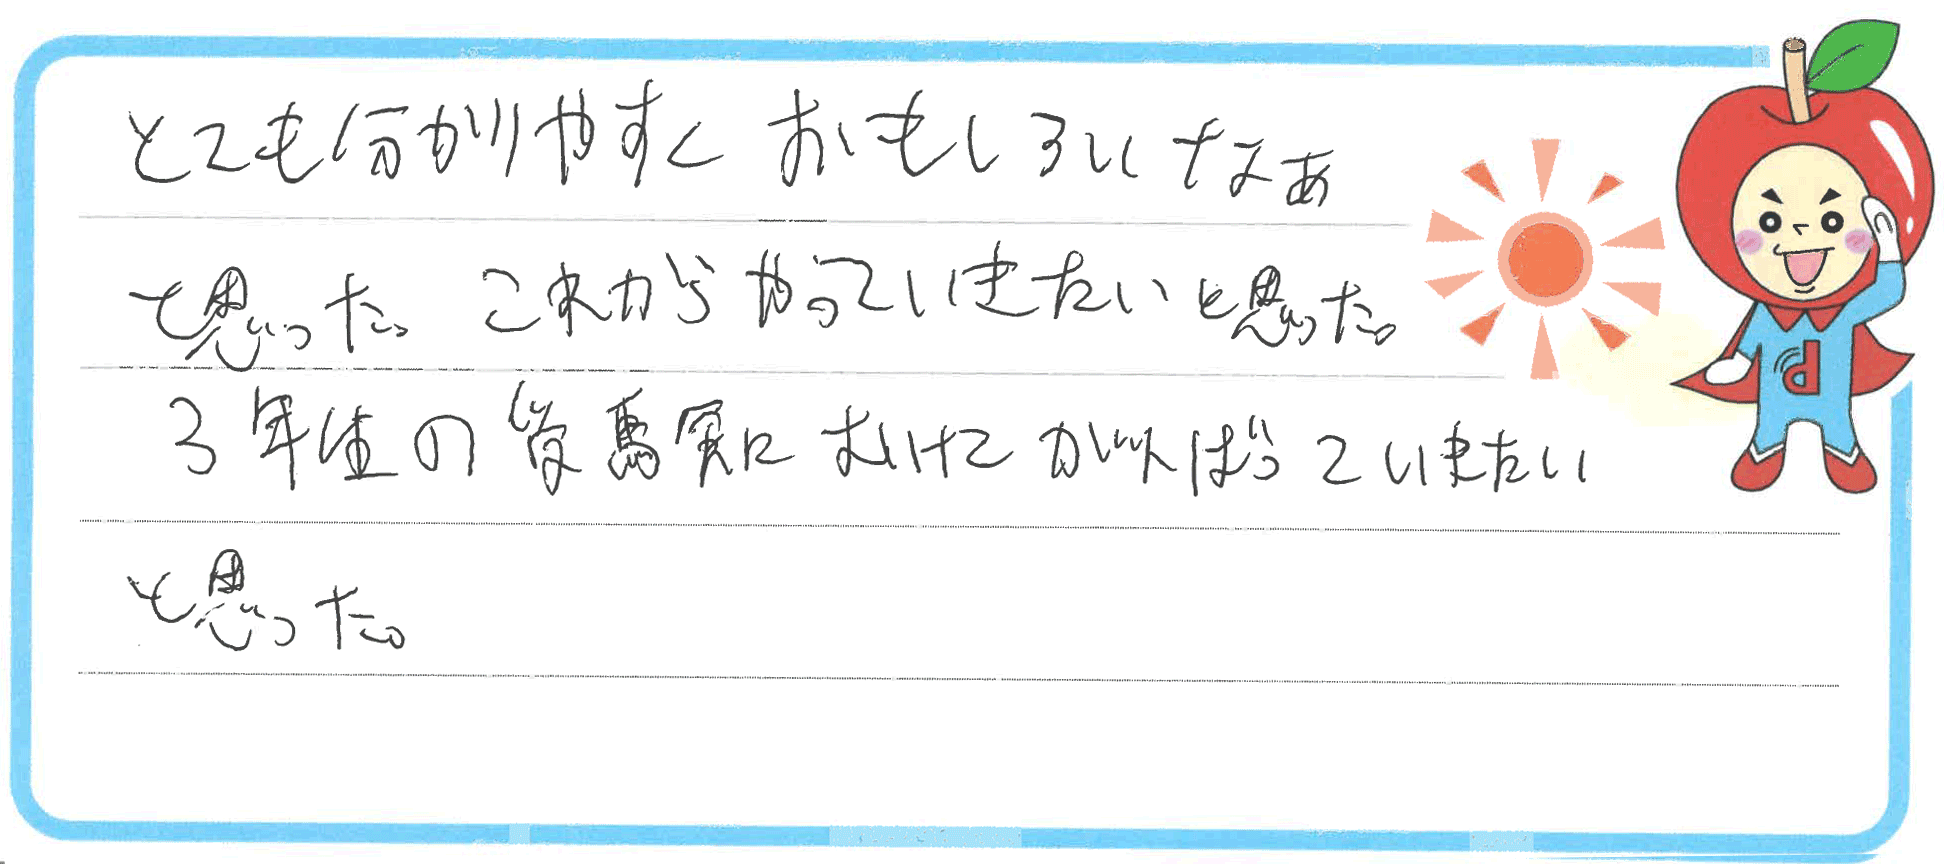 とても分かりやすく おもしろいなぁ
と思った。これからやっていきたいと思った。
3年生の受験にむけてがんばっていきたい
と思った。